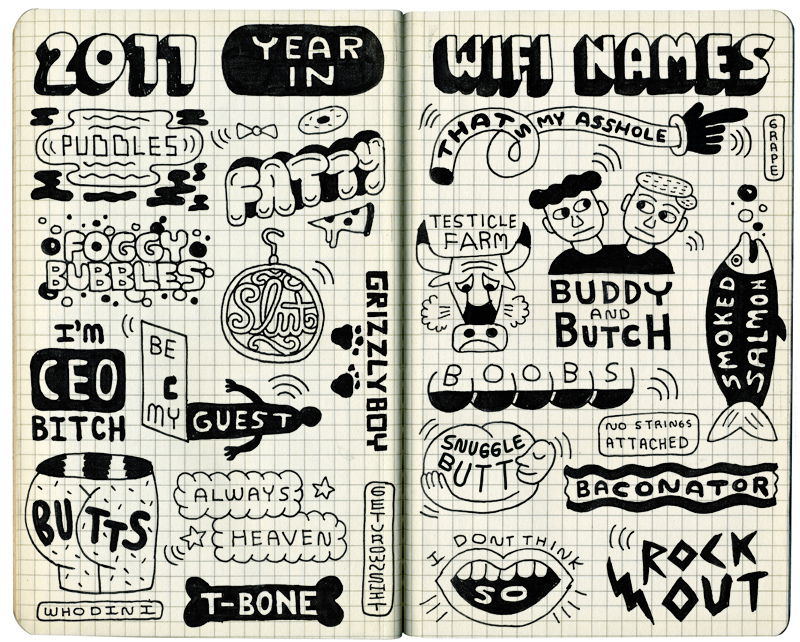 2011 YEAR
IN
WIFI NAMES
PUDDLES
FATTY
FOGGY
BUBBLES
Slut
GRIZZLYBOY
I'M
CEO
BITCH
BE
C
MY
GUEST
BUTTS
ALWAYS
HEAVEN
WHODINI
T-BONE
THAT'S MY ASSHOLE
GRAPE
TESTICLE
FARM
BUDDY
AND
BUTCH
SMOKED
SALMON
BOOBS
NO STRINGS
ATTACHED
SNUGGLE
BUTT
BACONATOR
I DONT THINK
SO
ROCK
OUT